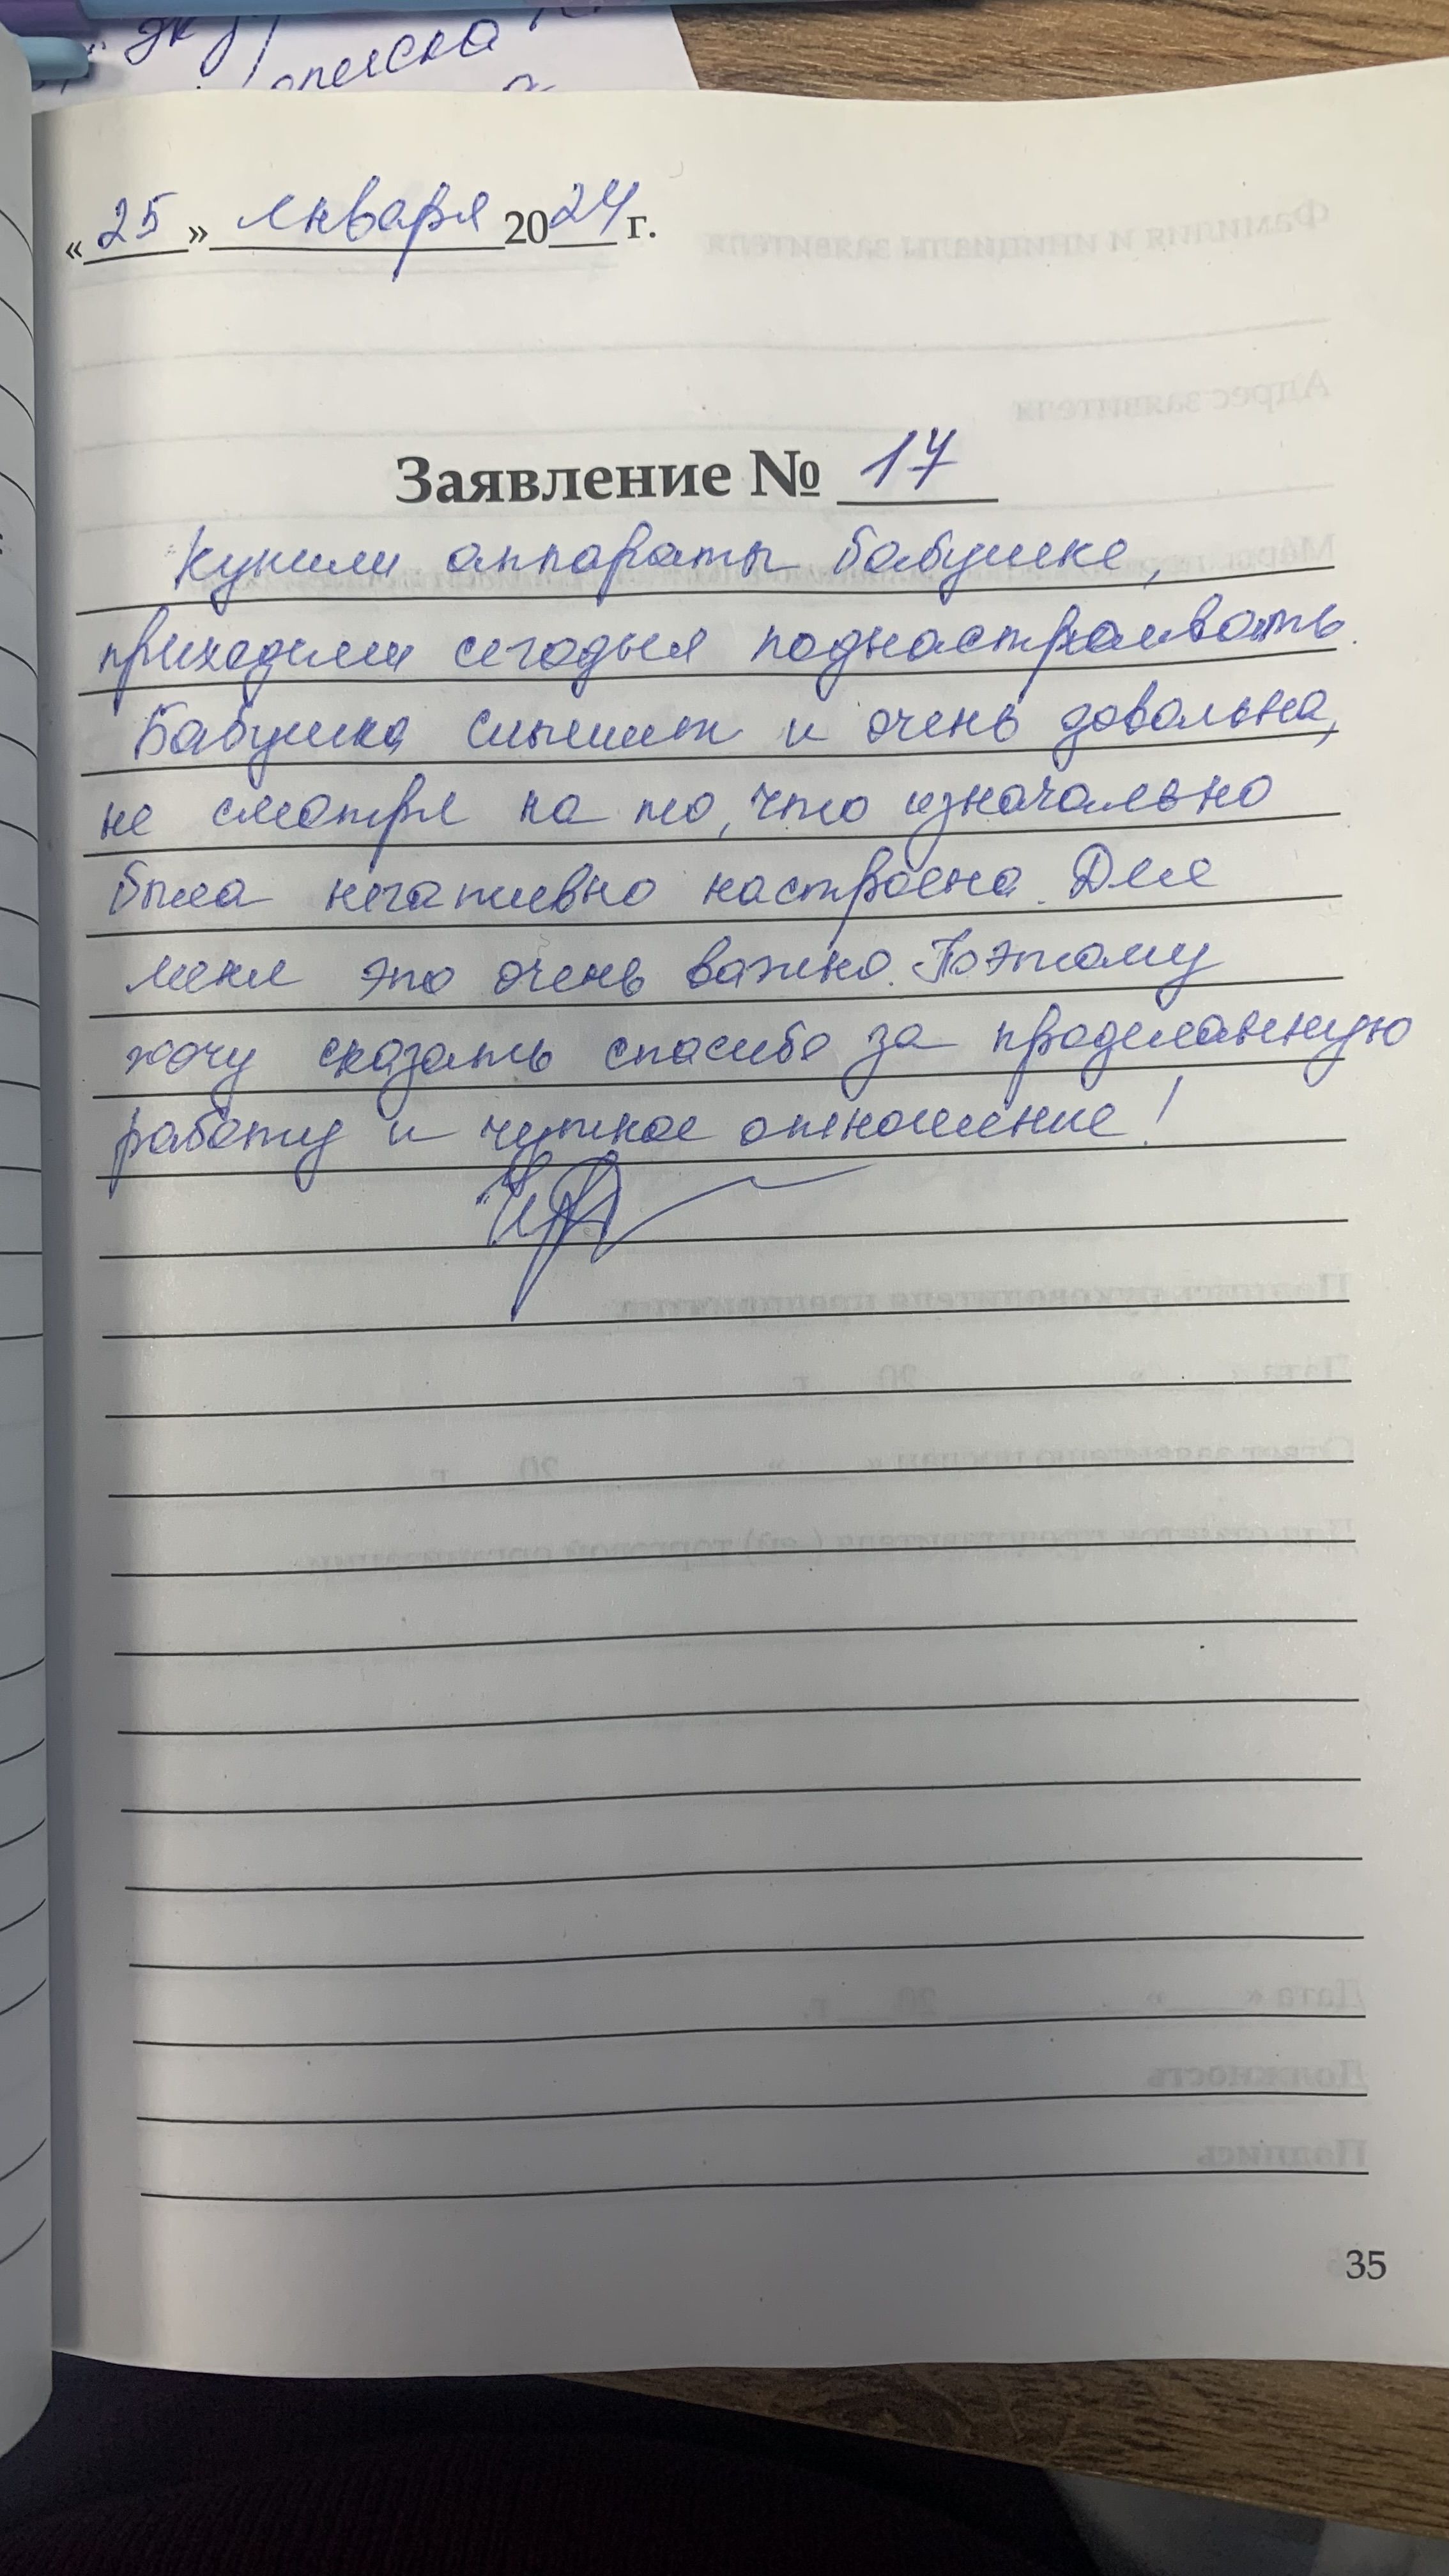 описка
«25» января 2024 г.
Заявление № 17
Купили аппараты бабушке,
приходили сегодня поднастраивать.
Бабушка слышит и очень довольна,
не смотря на то, что изначально
была негативно настроена. Для
меня это очень важно. Поэтому
хочу сказать спасибо за проделанную
работу и чуткое отношение!
35